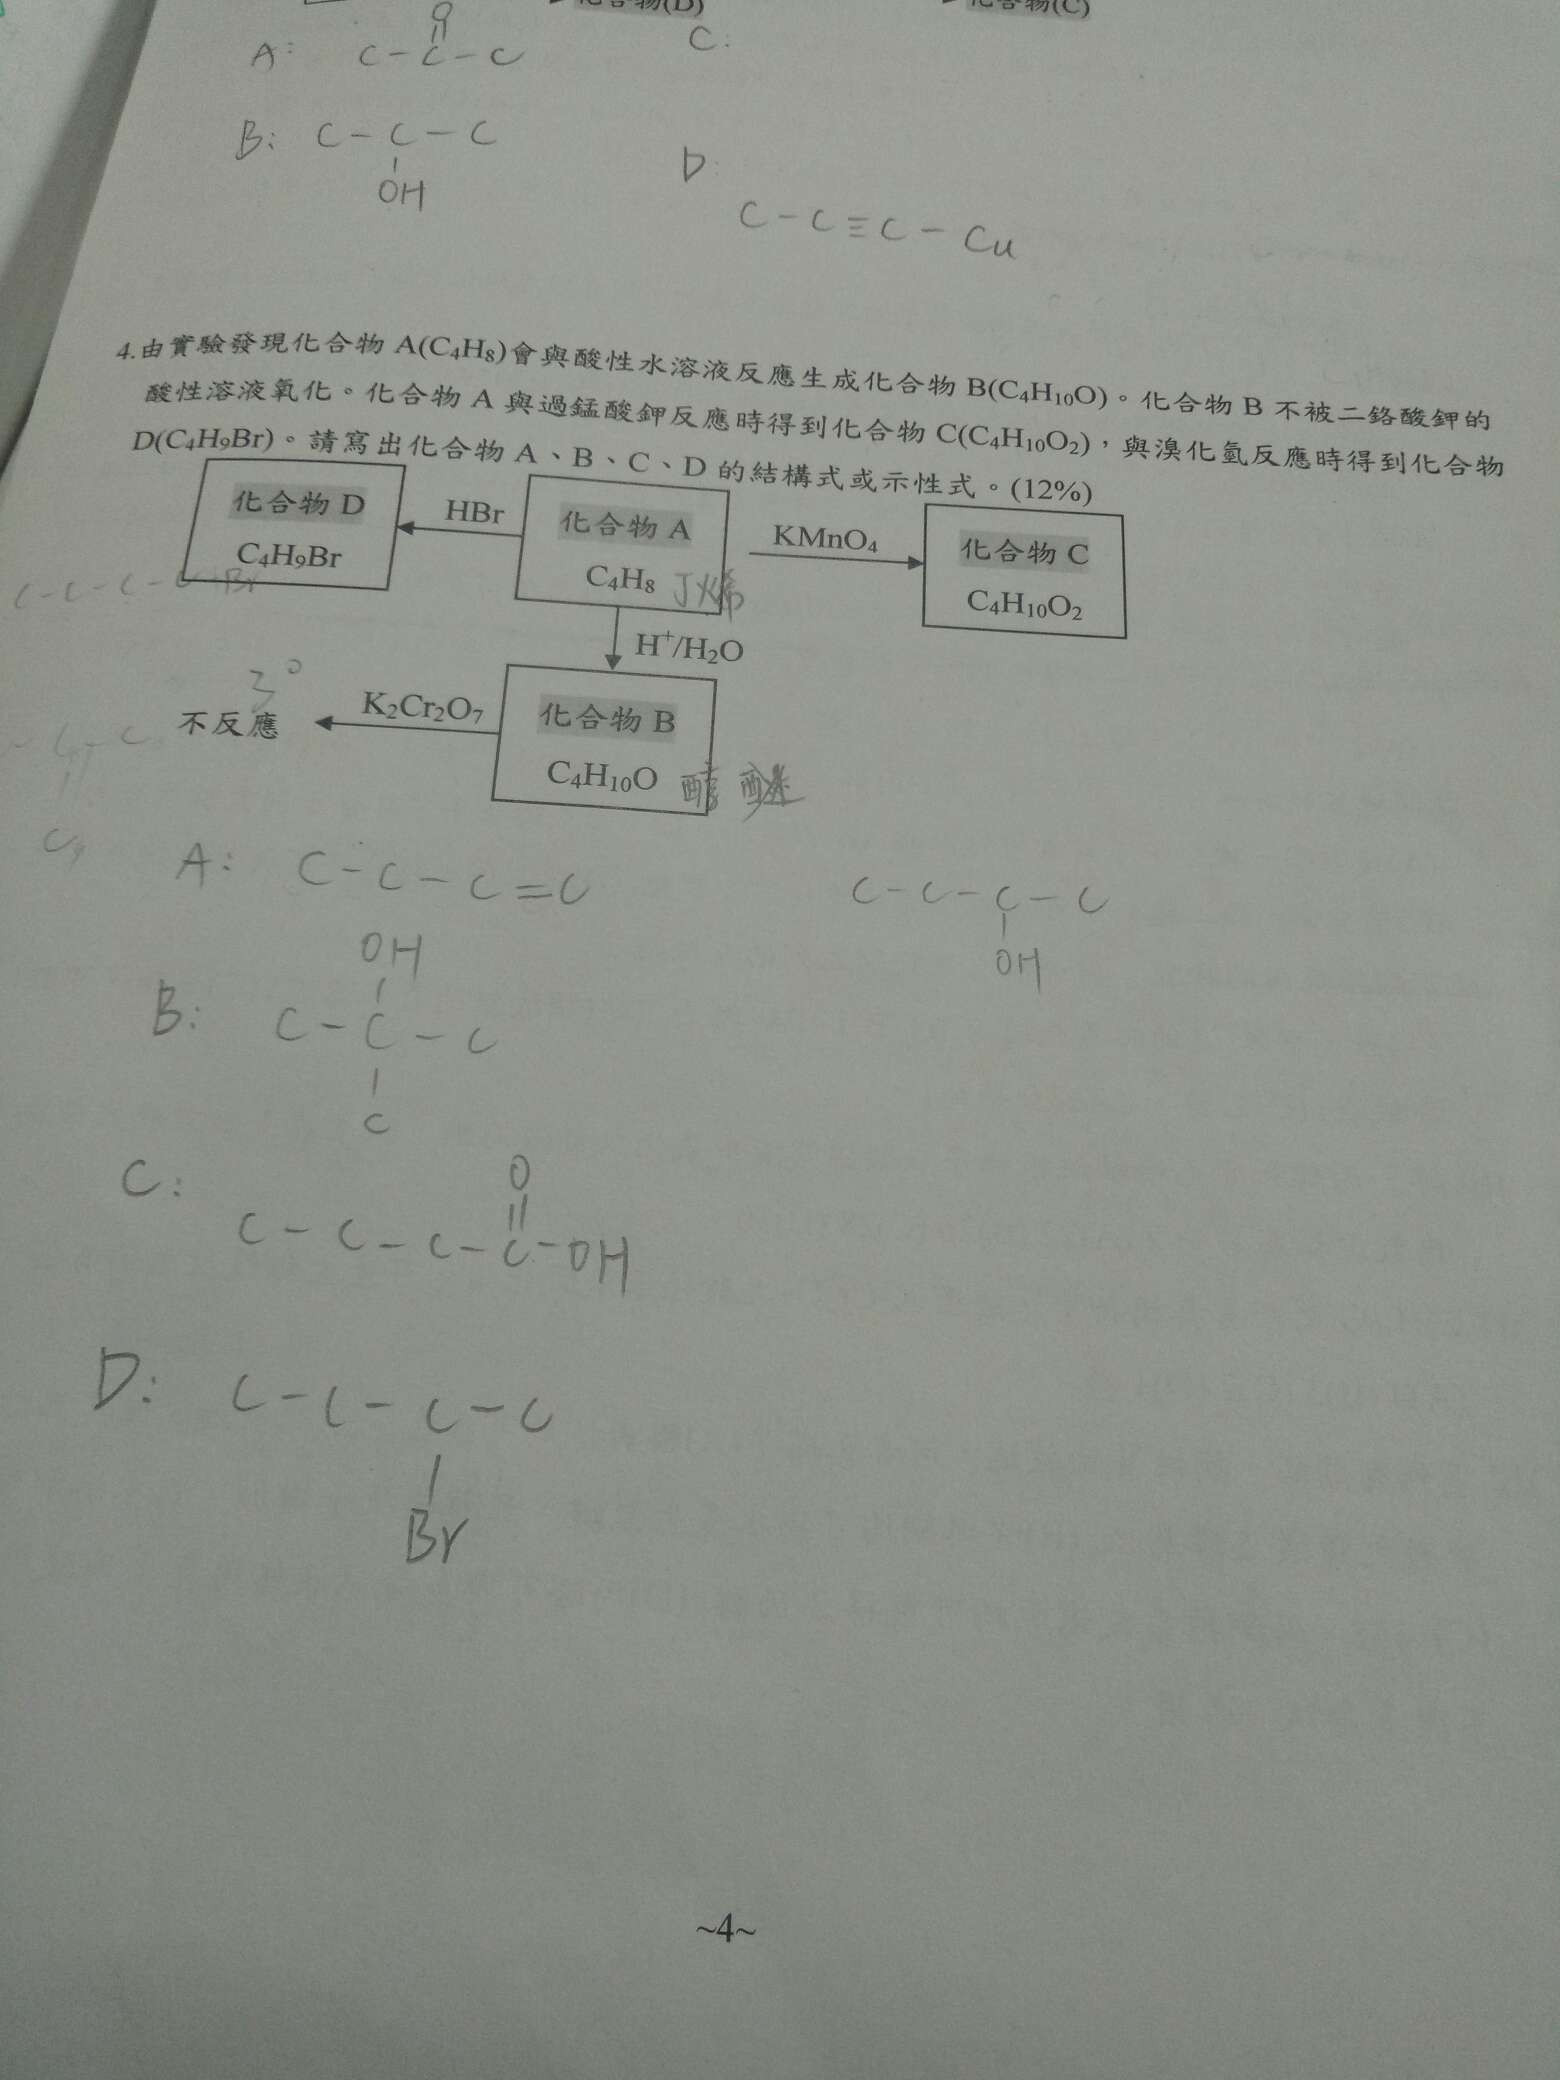 化合物(D) 化合物(C)
O
||
A: C-C-C C:
B: C-C-C
OH
D:
C-C≡C-Cu
4.由實驗發現化合物 A(C₄H₈)會與酸性水溶液反應生成化合物 B(C₄H₁₀O)。化合物 B 不被二鉻酸鉀的
酸性溶液氧化。化合物 A 與過錳酸鉀反應時得到化合物 C(C₄H₁₀O₂),與溴化氫反應時得到化合物
D(C₄H₉Br)。請寫出化合物 A、B、C、D 的結構式或示性式。(12%)
化合物 D HBr 化合物 A KMnO₄ 化合物 C
C₄H₉Br C₄H₈ 丁烯 C₄H₁₀O₂
C-C-C-C-Br
H⁺/H₂O
3°
不反應 K₂Cr₂O₇ 化合物 B
C₄H₁₀O 醇 醚
A: C-C-C=C C-C-C-C
OH
OH
B: C-C-C
C
C: O
||
C-C-C-C-OH
D: C-C-C-C
Br
~4~